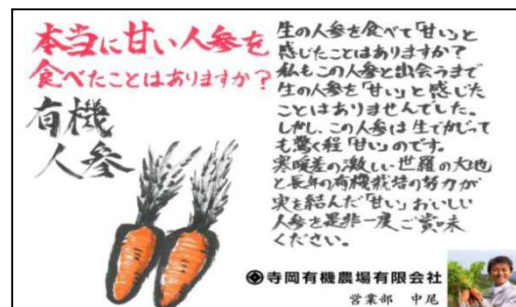 本当に甘い人参を
食べたことはありますか?
有機
人参
生の人参を食べて「甘い」と
感じたことはありますか?
私もこの人参と出会うまで
生の人参を「甘い」と感じた
ことはありませんでした。
しかし、この人参は生でかじって
も驚く程「甘い」のです。
寒暖差の激しい世羅の大地
と長年の有機栽培の努力が
実を結んだ「甘い」おいしい
人参を是非一度、ご賞味
ください。
寺岡有機農場有限会社
営業部 中尾